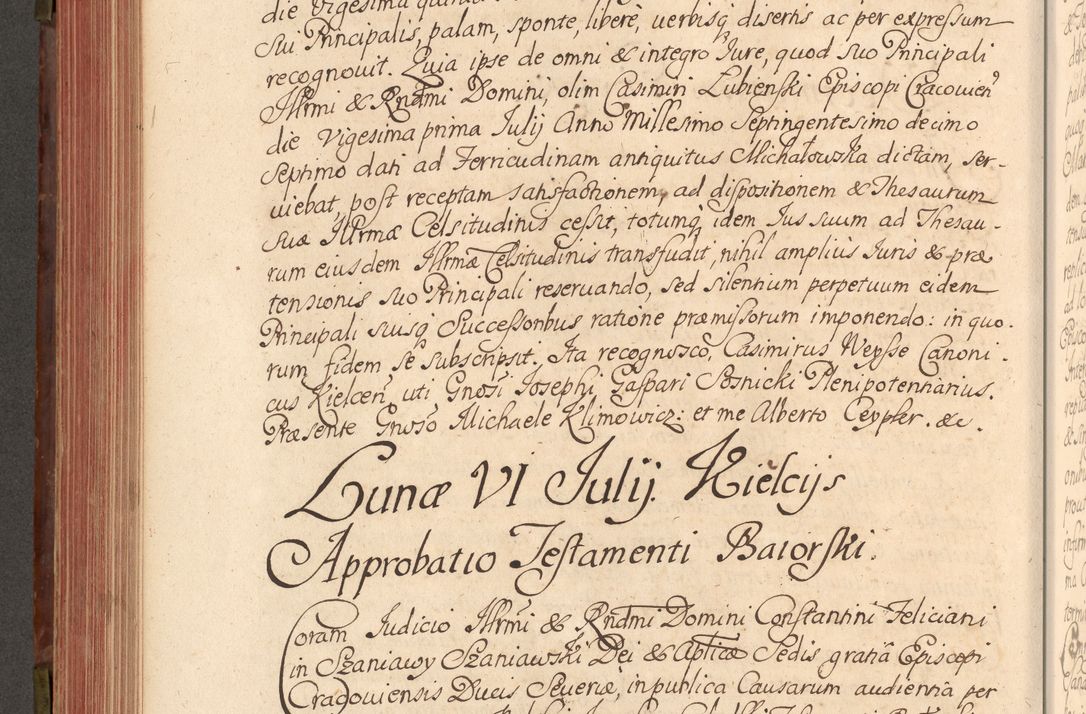 die Vigesima
sui Principalis, palam, sponte, liberè, uerbisq̃ disertis ac per expressum
recognouit. Quia ipse de omni & integro Jure, quod suo Principali
Illrmi & Rndmi Domini, olim Casimiri Lubienski Episcopi Cracouien̉
die Vigesima prima Julij Anno Millesimo Septingentesimo decimo
septimo dati ad Ferricudinam antiquitus Michałowska dictam, ser-
uiebat, post receptam satisfactionem, ad dispositionem & Thesaurum
suæ Illrmæ Celsitudinis cessit, totumq̃ idem Jus suum ad Thesau-
rum eiusdem Illrmæ Celsitudinis transfudit, nihil amplius Juris & præ
tensionis suo Principali reseruando, sed silentium perpetuum eidem
Principali suisq̃ Successoribus ratione præmissorum imponendo: in quo-
rum fidem se subscripsit. Ita recognosco, Casimirus Weysse Canoni-
cus Kielcen̉, uti Gnosi Josephi Gaspari Sosnicki Plenipotentiarius.
Præsente Gnoso Michaele Klimowicz: et me Alberto Ceypler. &c.
Lunæ VI Julij. Kielcijs
Approbatio Testamenti Baiorski.
Coram Judicio Illrmi & Rndmi Domini Constantini Feliciani
in Szaniawy Szaniawski Dei & Apticæ Sedis gratiâ Episcopi
Cracouiensis Ducis Seueriæ, in publica Causarum audientia per